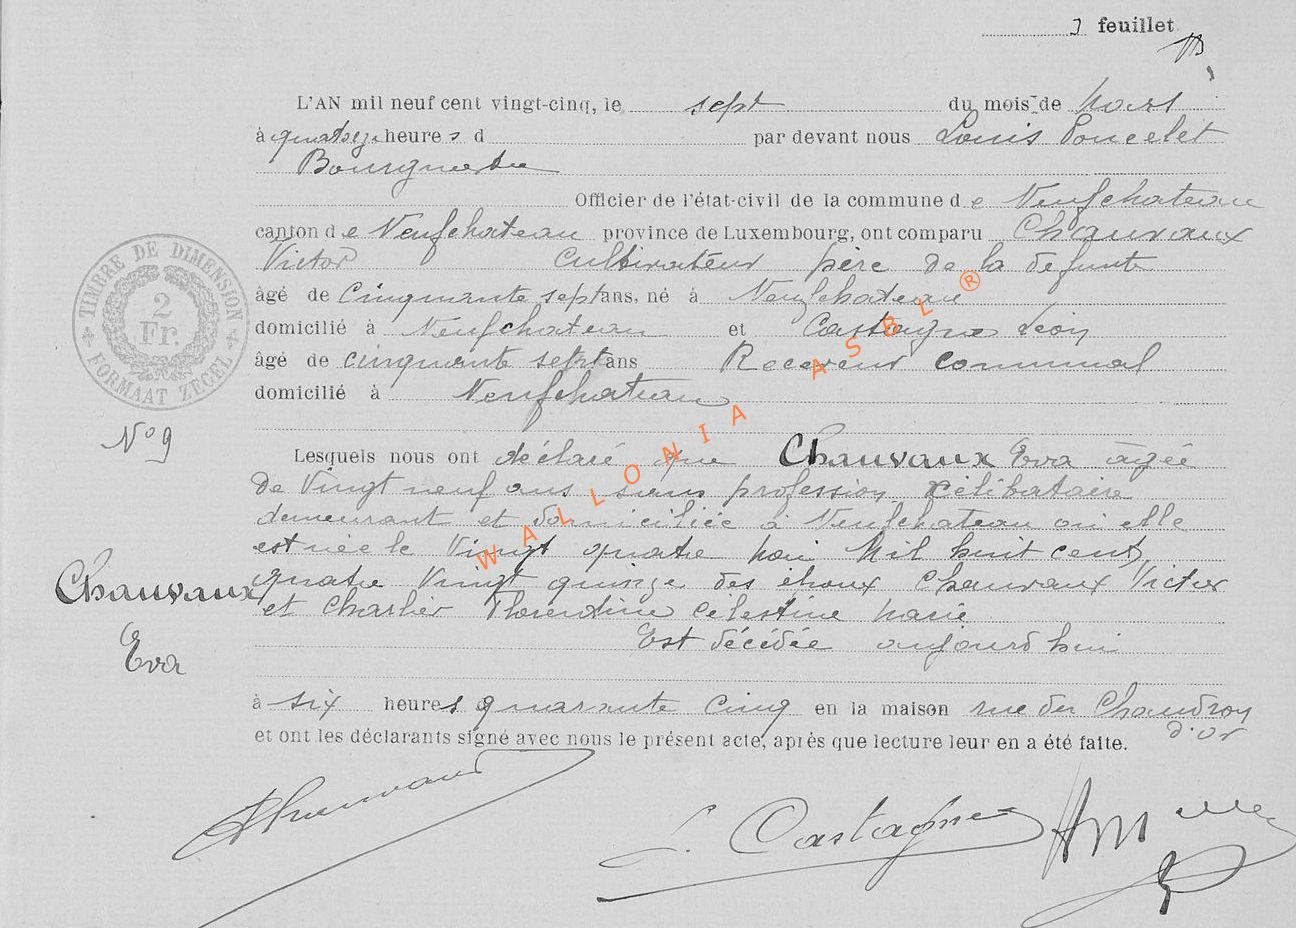 3 feuillet
L'AN mil neuf cent vingt-cinq, le sept du mois de Mars
à quatorze heures d par devant nous Louis Poncelet
Bourgmestre
Officier de l'état-civil de la commune de Neufchateau
canton de Neufchateau province de Luxembourg, ont comparu Chauvaux
Victor Cultivateur père de la defunte
âgé de Cinquante sept ans, né à Neufchateau
domicilié à Neufchateau et Castagne Léon
âgé de cinquante sept ans Receveur communal
domicilié à Neufchateau
TIMBRE DE DIMENSION
2
Fr.
FORMAAT ZEGEL
N° 9
Lesquels nous ont déclaré que Chauvaux Eva âgée
de Vingt neuf ans sans profession célibataire
demeurant et domiciliée à Neufchateau où elle
est née le Vingt quatre Mai Mil huit cent
quatre Vingt quinze des époux Chauvaux Victor
et Charlier Florentine Célestine Marie
Est décédée aujourd'hui
Chauvaux
Eva
à six heures quarante cinq en la maison rue du Chaudron
d'or
et ont les déclarants signé avec nous le présent acte, après que lecture leur en a été faite.
Chauvaux
L. Castagne
WALLONIA ASBL ®